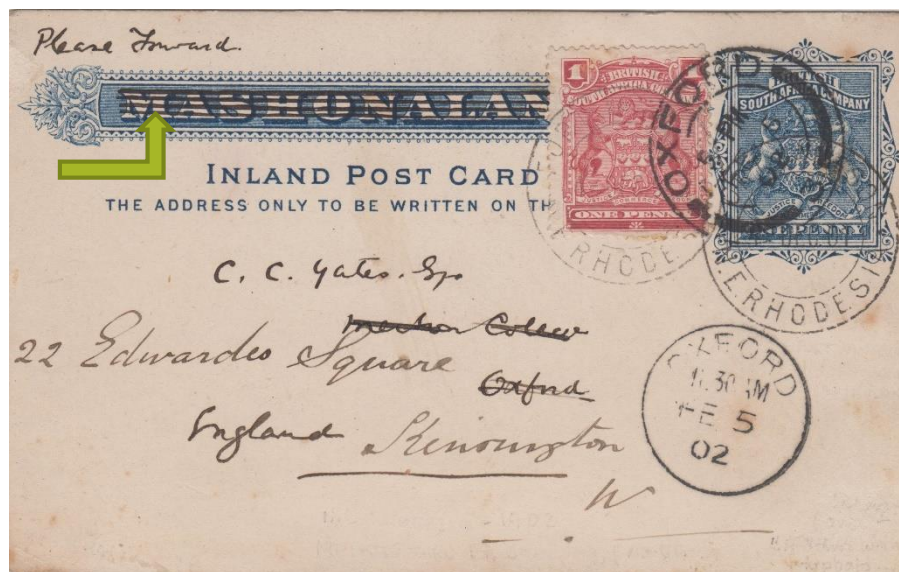 Please Forward.
MASHONALAN
INLAND POST CARD
THE ADDRESS ONLY TO BE WRITTEN ON TH
1 1
BRITISH
SOUTH AFRICA
JUSTICE COMMERCE
ONE PENN
BRITISH
SOUTH AFRICA COMPANY
JUSTICE FREEDOM
PENNY
OXFORD
PM
RHODE
RHODESI
C. C. Yates. Esq
Merton College
22 Edwardes Square
Oxford
England Kensington
W
OXFORD
11.30 AM
FE 5
02